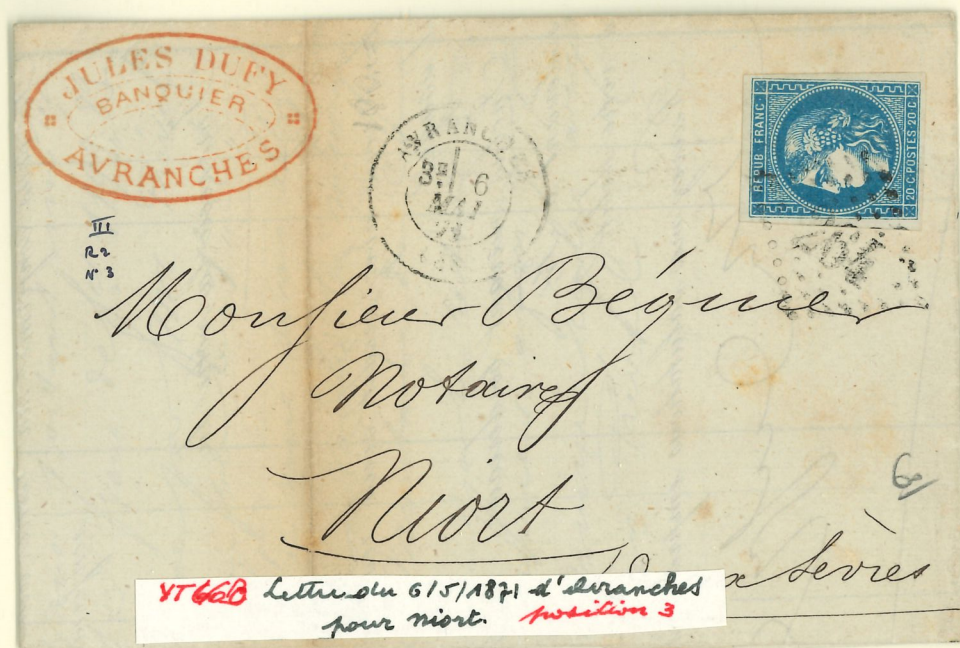 JULES DUFY
BANQUIER
AVRANCHES
AVRANCHES
3E 6
MAI
71
REPUB FRANC
20 C POSTES 20 C
III
R2
N° 3
Monsieur Béguier
Notaire
Niort
Sèvres
YT 46B Lettre du 6/5/1871 d'Avranches
pour Niort. position 3